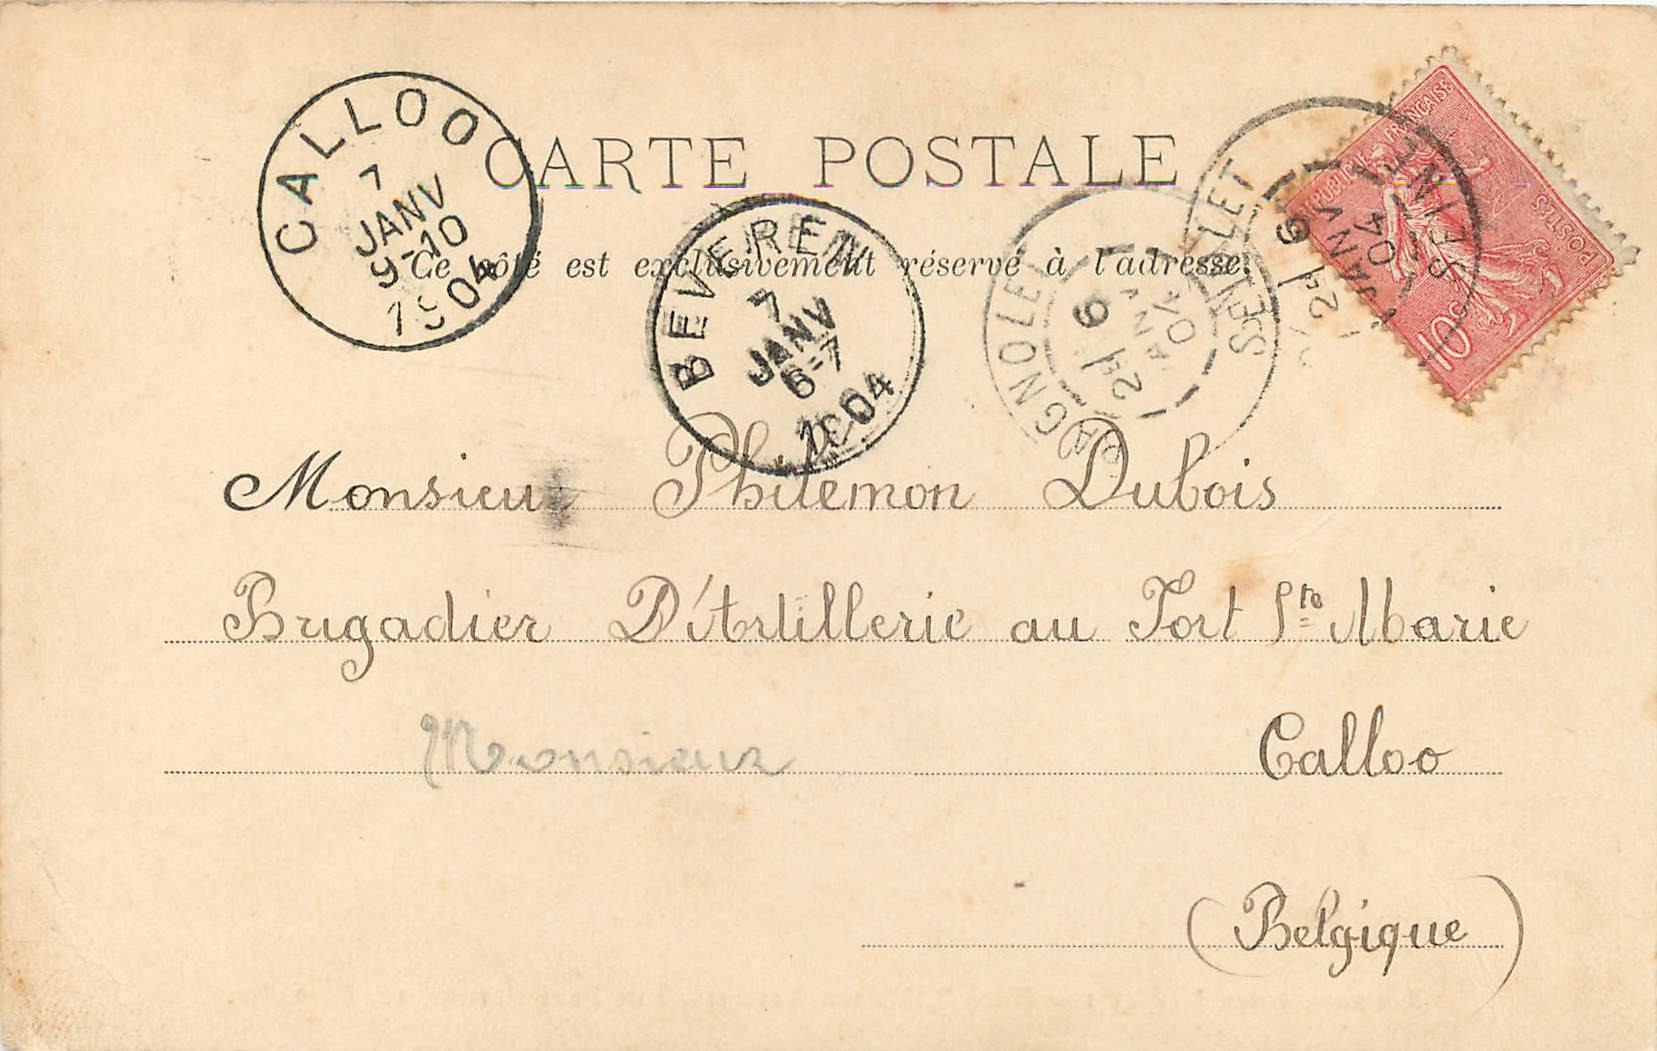 CARTE POSTALE
Ce côté est exclusivement réservé à l'adresse.
CALLOO
7
JANV
9-10
1904
BEVEREN
7
JANV
6-7
1904
BAGNOLET
6
JANV
04
SEINE
BAGNOLET
6
JANV
04
SEINE
REPUBLIQUE FRANÇAISE
POSTES
10c
Monsieur Philemon Dubois
Brigadier D'Artillerie au Fort Ste Marie
Monsieur Calloo
(Belgique)